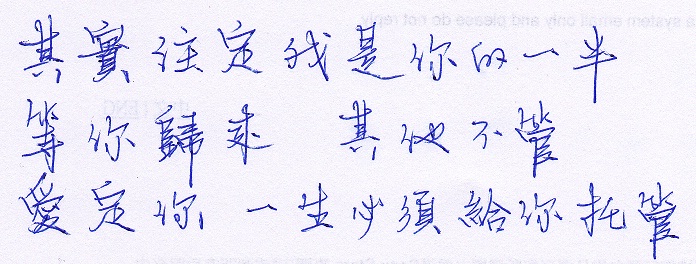 其實注定我是你的一半
等你歸來 其他不管
愛定你, 一生必須給你托管
a system email only and please do not reply